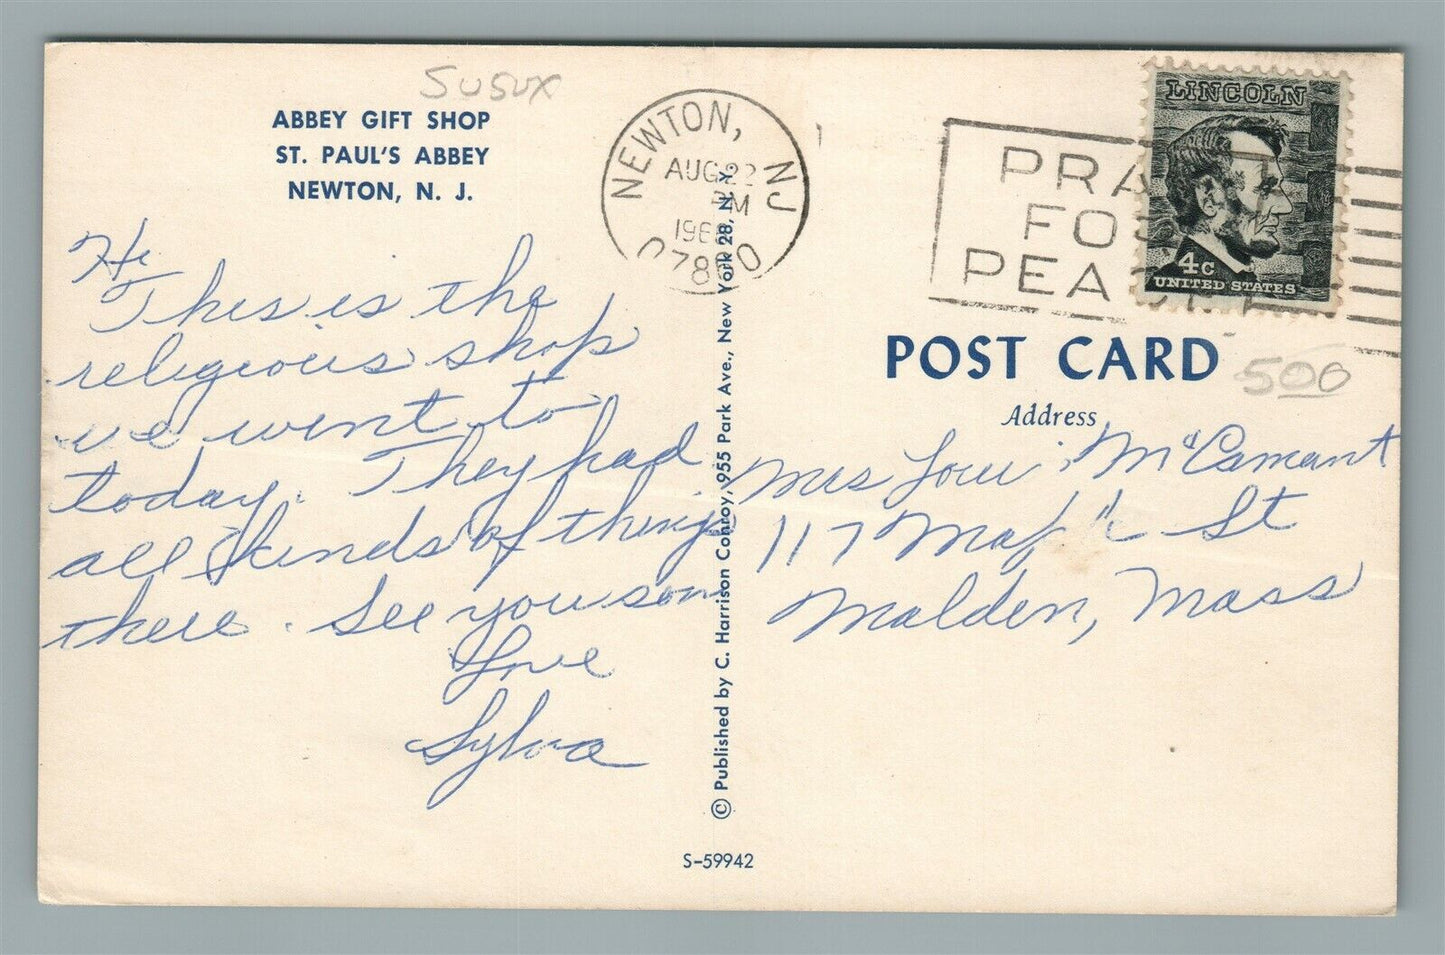 SUSUX
ABBEY GIFT SHOP
ST. PAUL'S ABBEY
NEWTON, N. J.
Hi
This is the
religious shop
we went to
today. They had
all kinds of things
there. See you soon
Love
Sylva
NEWTON, NJ
AUG 22
PM
196
PRA
FO
PEA
LINCOLN
4c
UNITED STATES
POST CARD
500
Address
Mrs Loui McCamant
117 Maple St
Malden, Mass
© Published by C. Harrison Conroy, 955 Park Ave., New York 28, N. Y.
S-59942